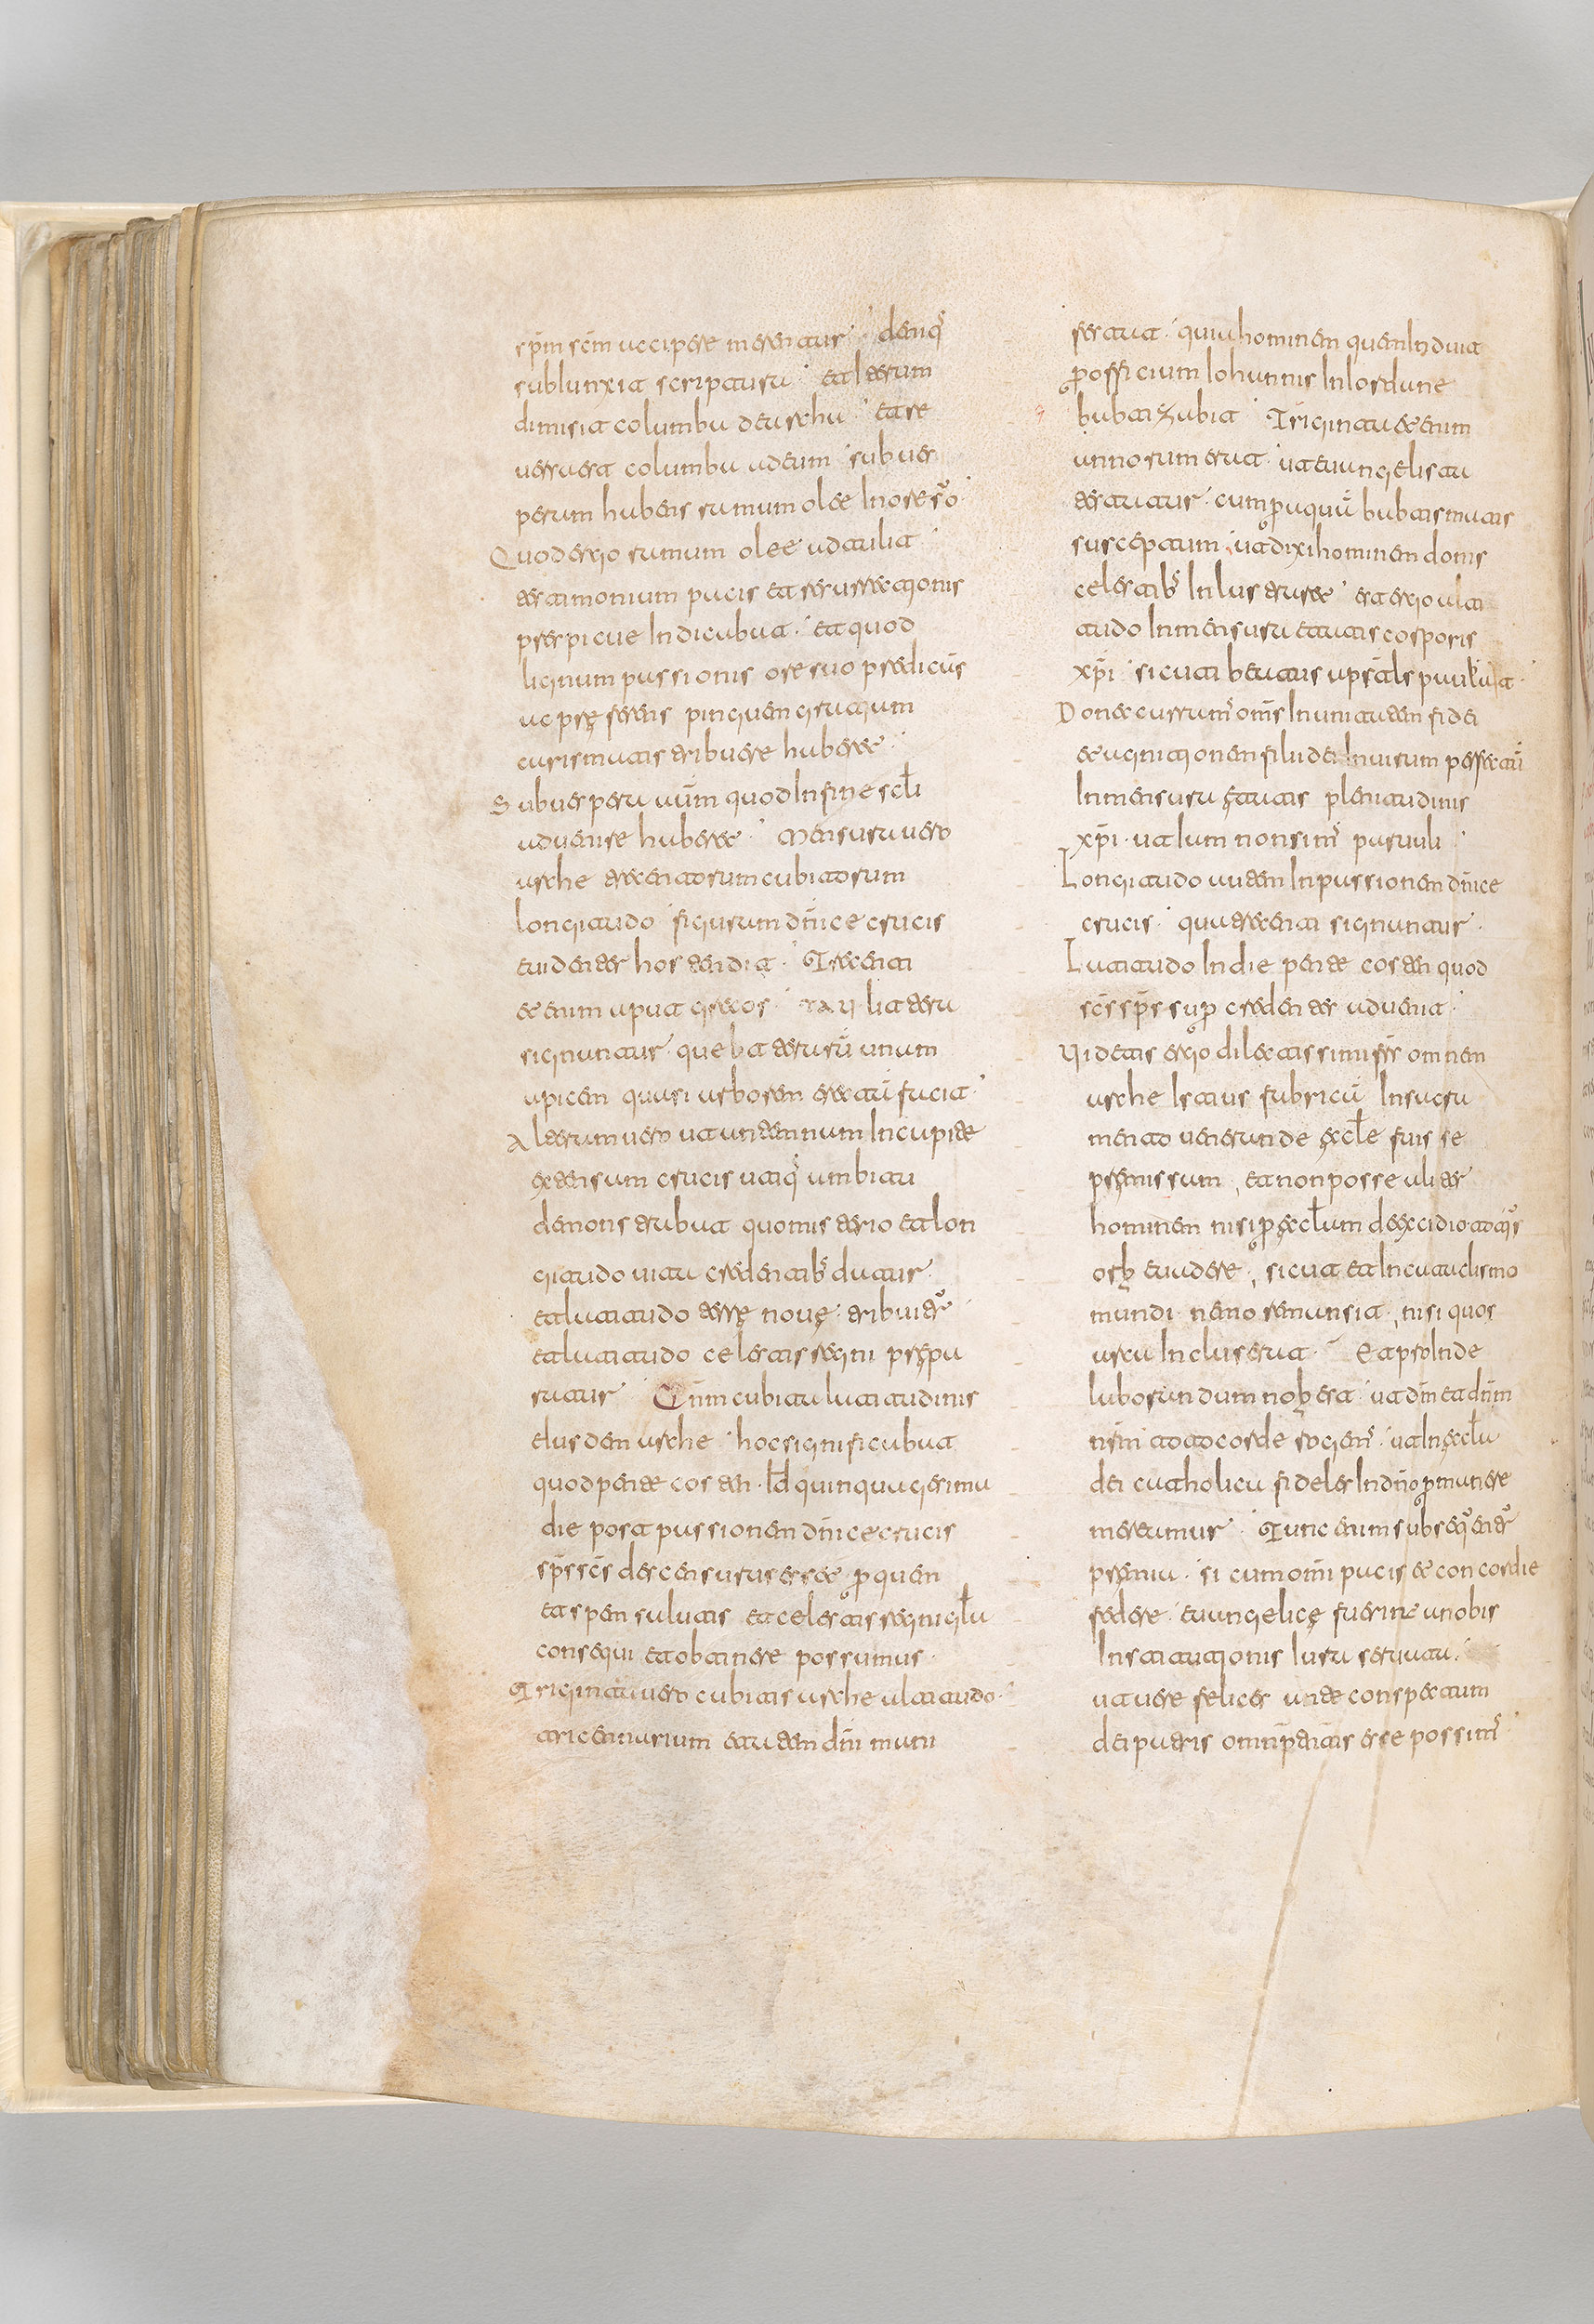 spm scm accipere mereatur · denq
subiunxit scriptura · et iterum
dimisit columba de archa · et re
uersa est columba ad eum sub ues
perum habens ramum olee in ore suo
Quod ergo ramum olee adtulit
testimonium pacis et resurrectionis
perspicue indicabat · et quod
lignum passionis ore suo predicans
ac pręferens pinguem gratium
carismatis tribuere haberet ·
Sub uespera autm quod in fine scli
aduenire haberet · Mensura uero
arche trecentorum cubitorum
longitudo figuram dnice crucis
euidenter hostendit · Trecenti
etenim aput grecos · tau littera
signantur · que littera unum
apicem quasi arborem erectū facit ·
Alterum uero ut antemnam in capite
extensum crucis utiq ambitu
demonstrabat quo misterio et lon
gitudo uita credentib datur ·
et latitudo terrę nouę · tribuitur
et latitudo celestis regni prępa
ratur Qūm cubita latitudinis
eiusdem arche hoc significabat
quod pentecosten · id quinquagesima
die post passionem dnice crucis
sps scs descensurus esset p quem
et spem salutis et celestis regni gla
consequi et obtinere possumus ·
Triginta uero cubitis arche altitudo ·
tricenarium etatem dni mani
festat · quia hominem quem induit
p officium iohannis in iordane
babtizabit Triginta etenim
annorum erat · ut euangelista
testatur · cum p aquam babtismatis
susceptum ut dixi hominem donis
celestib inlustraret est ergo alti
tudo in mensura etatis corporis
xpi sicut beatus apstls paulus ait ·
Donec curram omns in unitatem fidei
et agnitionem filii dei in uirum perfectū
in mensura ętatis plenitudinis
xpi · ut iam non sim paruuli
Longitudo autem in passionem dnice
crucis · qua trecenti signantur ·
Latitudo in die pentecosten quod
scs sps sup credentes aduenit ·
Videtis ergo dilectissimi frs omnem
arche istius fabricā in sacra
mento uenerande ęccle fuisse
pręmissum et non posse aliter
hominem nisi p ęcclam de excidio totius
orb euadere sicut et in cataclismo
mundi nemo remansit nisi quos
arca incluserat · Et proinde
laborandum nob est · ut dm et dnm
nsm toto corde rogem · ut in ęccla
dei catholica fideles in dno pmanere
mereamur · Tunc enim subsequentr
pręmia · si cum omi pacis et concordie
federe · euangelicę fuerint a nobis
instituationis iura seruata ·
ut uere felices ante conspectum
dei patris omnipttis esse possim